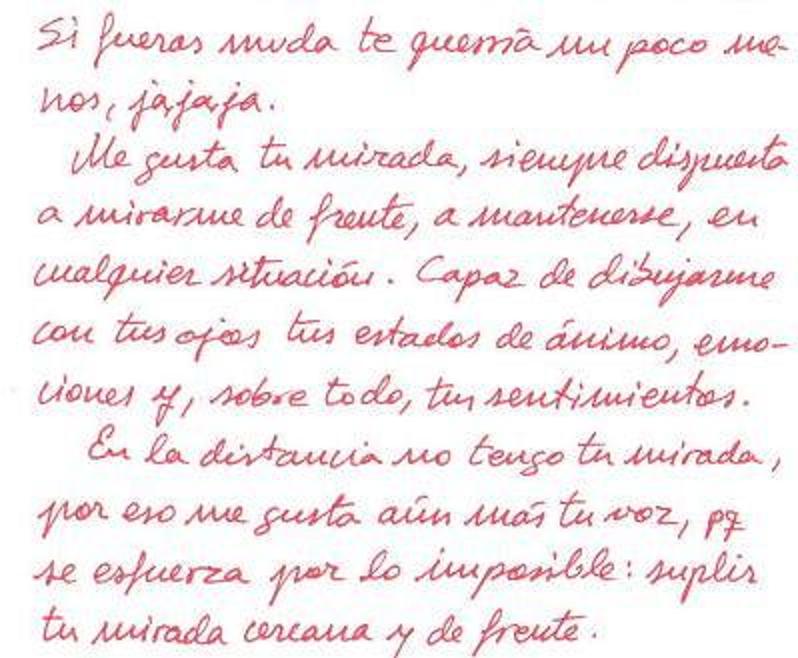 Si fueras muda te querría un poco me-
nos, ja,ja,ja.
Me gusta tu mirada, siempre dispuesta
a mirarme de frente, a mantenerse, en
cualquier situación. Capaz de dibujarme
con tus ojos tus estados de ánimo, emo-
ciones y, sobre todo, tus sentimientos.
En la distancia no tengo tu mirada,
por eso me gusta aún más tu voz, pq
se esfuerza por lo imposible: suplir
tu mirada cercana y de frente.